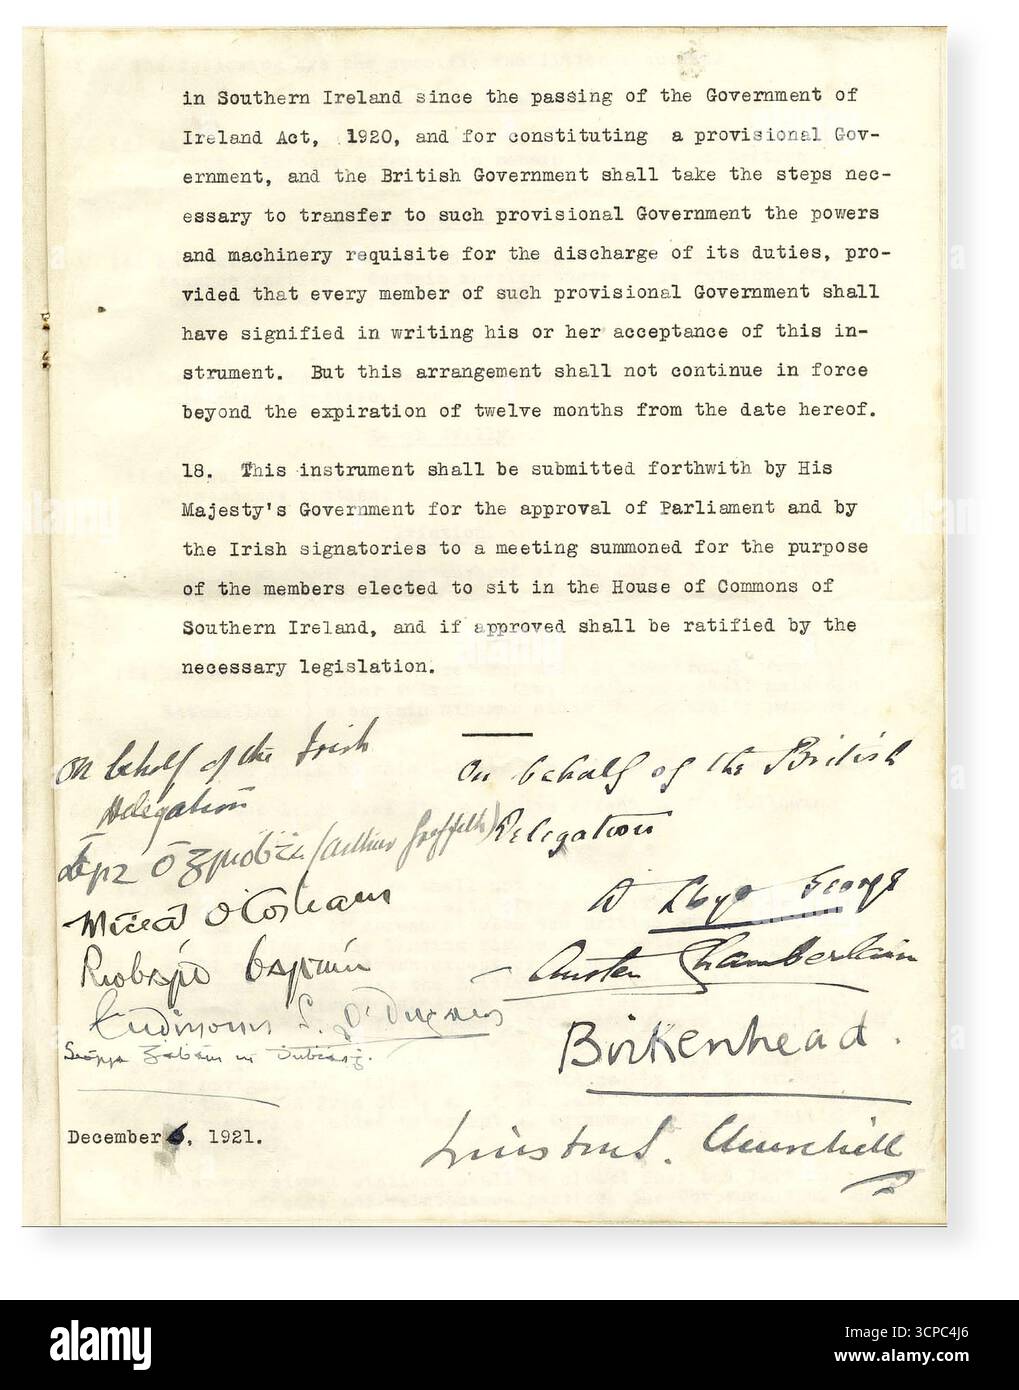 in Southern Ireland since the passing of the Government of
Ireland Act, 1920, and for constituting a provisional Gov-
ernment, and the British Government shall take the steps nec-
essary to transfer to such provisional Government the powers
and machinery requisite for the discharge of its duties, pro-
vided that every member of such provisional Government shall
have signified in writing his or her acceptance of this in-
strument. But this arrangement shall not continue in force
beyond the expiration of twelve months from the date hereof.
18. This instrument shall be submitted forthwith by His
Majesty's Government for the approval of Parliament and by
the Irish signatories to a meeting summoned for the purpose
of the members elected to sit in the House of Commons of
Southern Ireland, and if approved shall be ratified by the
necessary legislation.
On behalf of the Irish
Delegation
(Arthur Griffith)
Mícheál
December 6, 1921.
On behalf of the British
Delegation
D Lloyd George
Austen Chamberlain
Birkenhead.
Winston S. Churchill
alamy
Image ID: 3CPC4J6
www.alamy.com